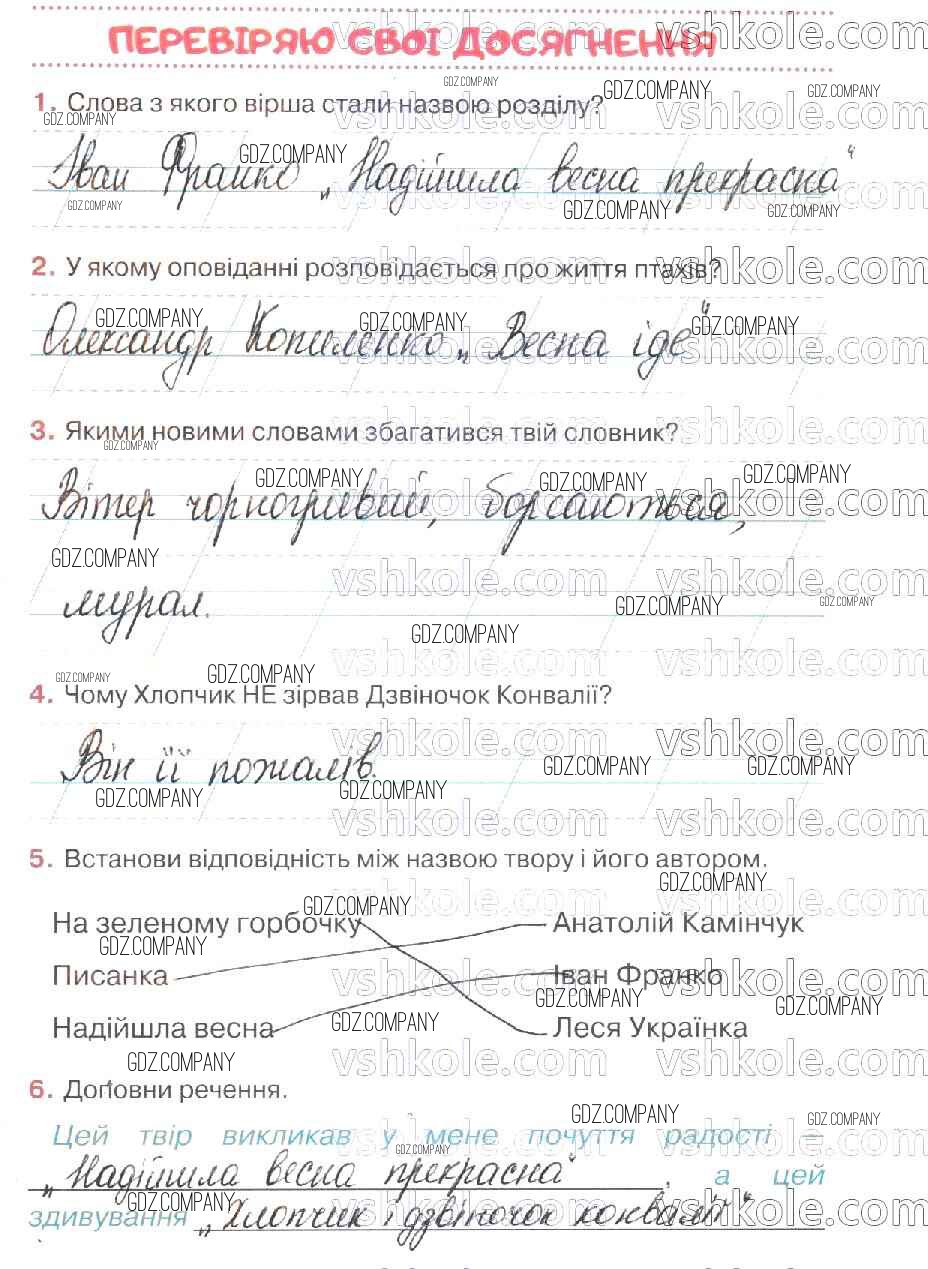 ПЕРЕВІРЯЮ СВОЇ ДОСЯГНЕННЯ
1. Слова з якого вірша стали назвою розділу?
Іван Франко „Надійшла весна прекрасна“
2. У якому оповіданні розповідається про життя птахів?
Олександр Копиленко „Весна іде“
3. Якими новими словами збагатився твій словник?
Вітер чорногривий, борсаються,
мурал.
4. Чому Хлопчик НЕ зірвав Дзвіночок Конвалії?
Він її пожалів.
5. Встанови відповідність між назвою твору і його автором.
На зеленому горбочку Анатолій Камінчук
Писанка Іван Франко
Надійшла весна Леся Українка
6. Доповни речення.
Цей твір викликав у мене почуття радості –
„Надійшла весна прекрасна“, а цей
здивування „Хлопчик і дзвіночок конвалії“
vshkole.com
GDZ.COMPANY